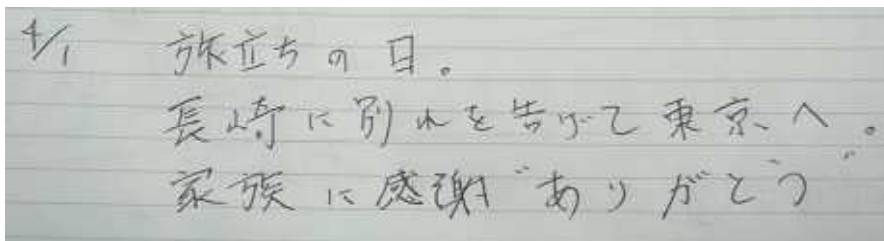 4/1 旅立ちの日。
長崎に別れを告げて東京へ。
家族に感謝"ありがとう"